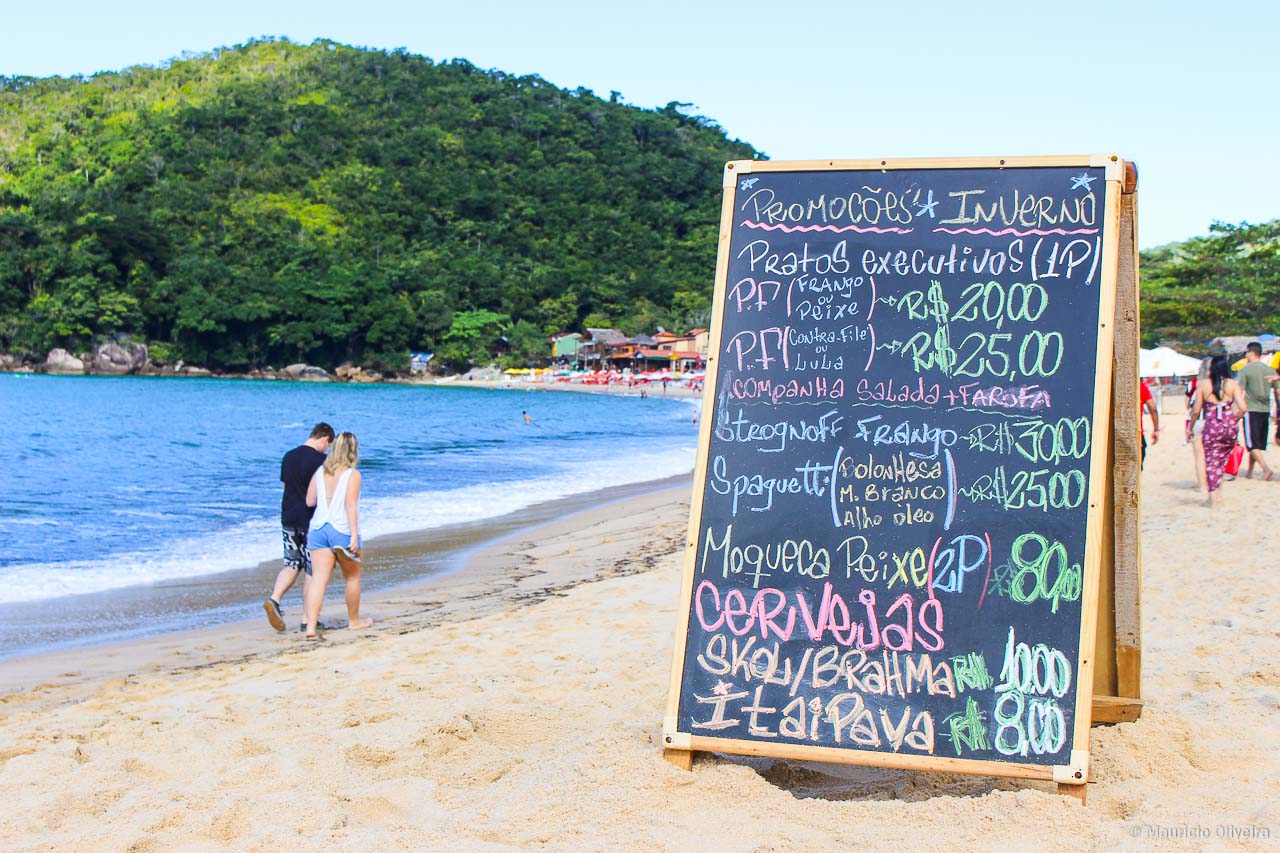 PROMOCÕES INVERNO
Pratos executivos (1P)
P.F (FRANGO ou PEIXE) R$20,00
P.F (CONTRA-FILÉ ou LULA) R$25,00
COMPANHA SALADA + FAROFA
Strognoff Frango R$30,00
Spaguetti (BOLONHESA M. BRANCO Alho óleo) R$25,00
Moqueca Peixe (2P) R$80,00
CERVEJAS
SKOL/BRAHMA R$ 10,00
ItaiPAVA R$ 8,00
© Mauricio Oliveira